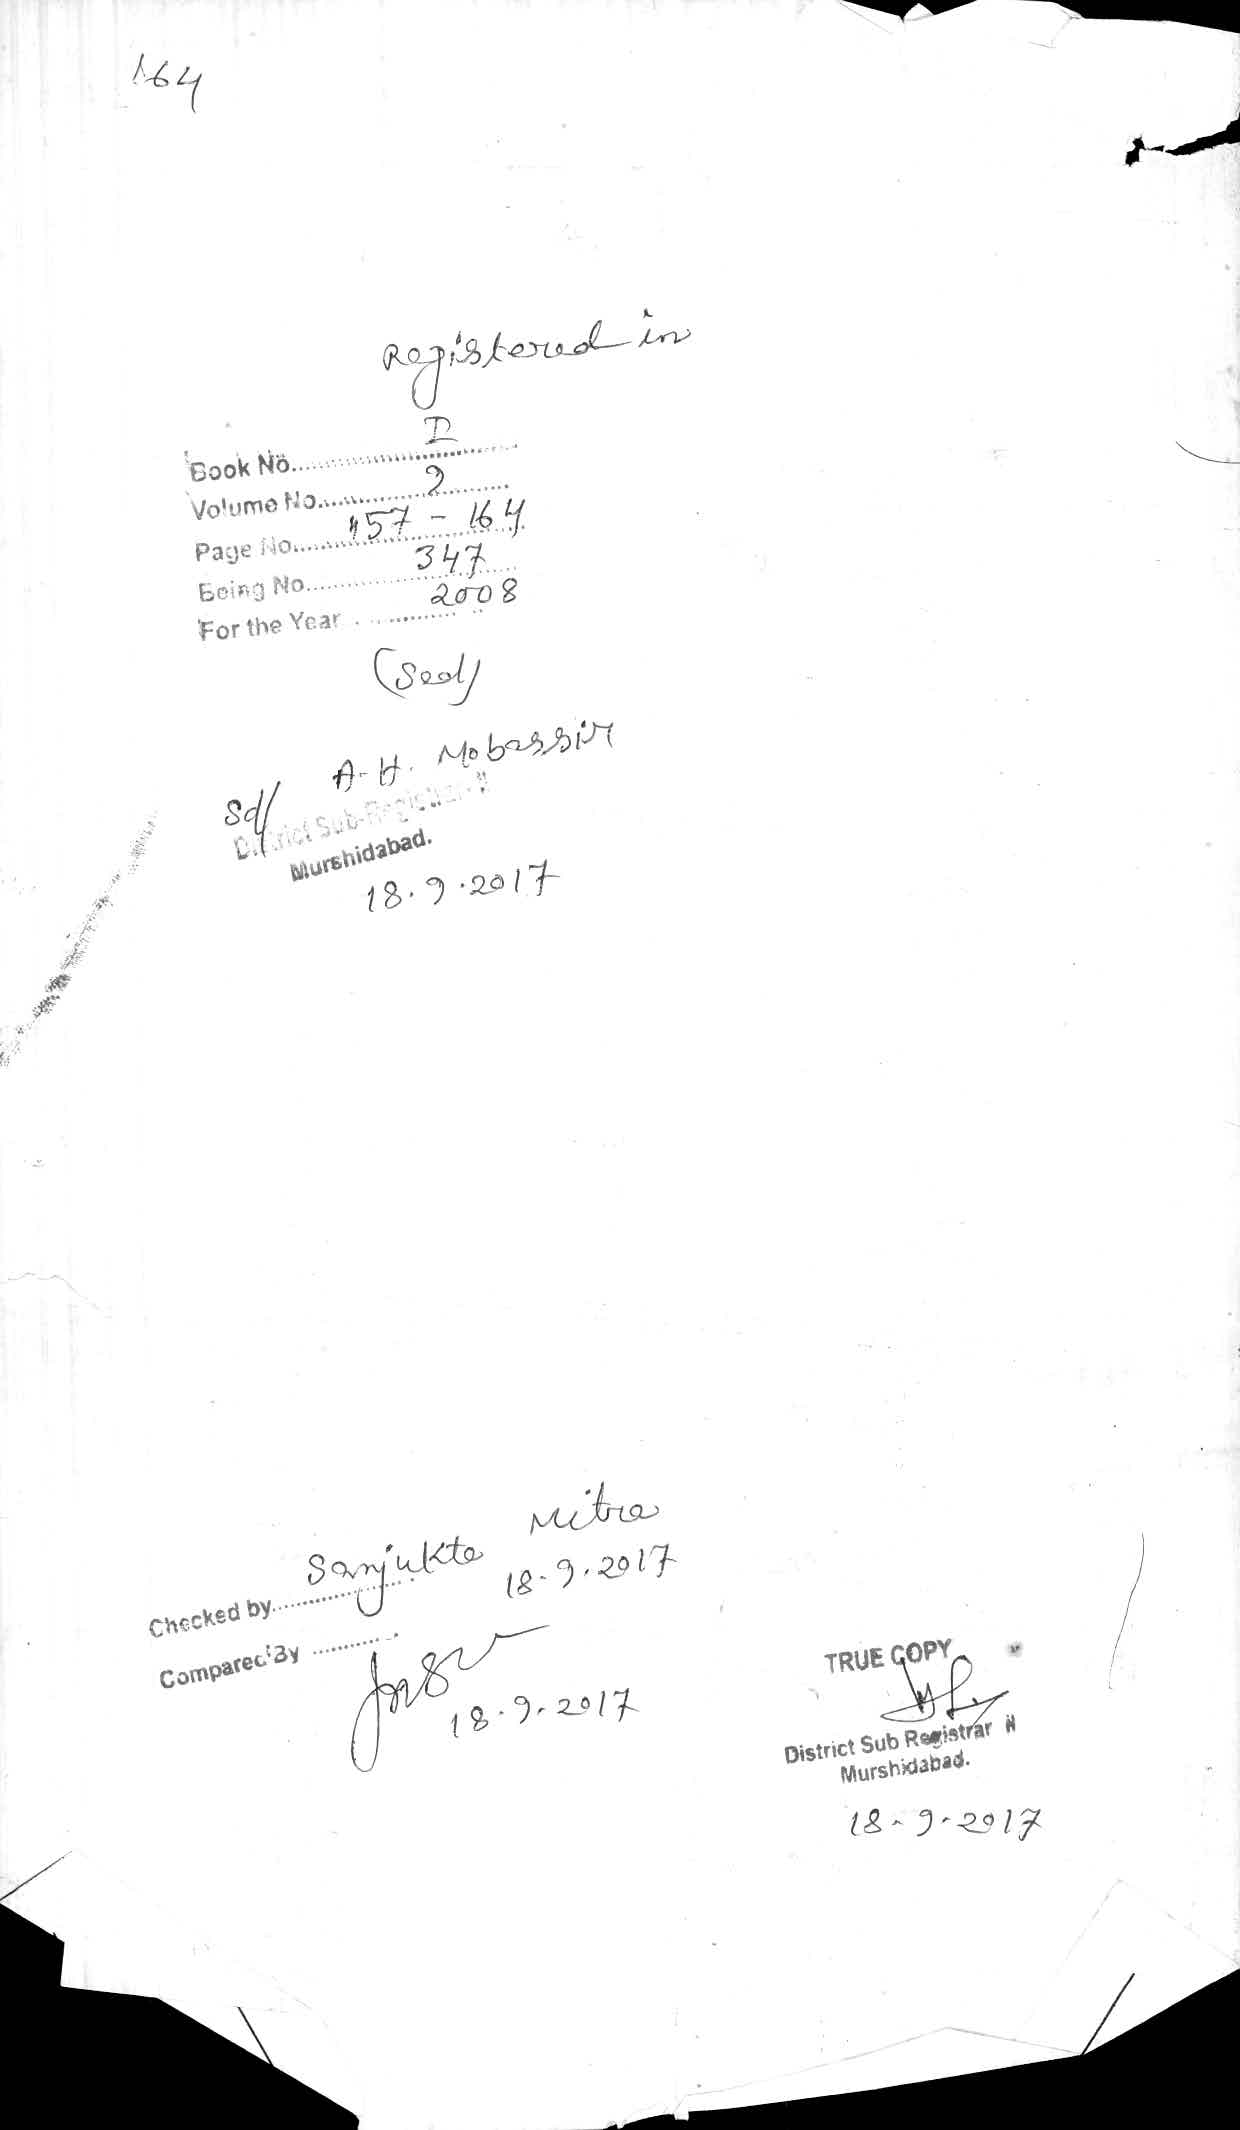 164
Registered in
Book No. I
Volume No. 2
Page No. 157 - 164
Being No. 347
For the Year 2008
(Seal)
Sd/ A. H. Mobassir
District Sub-Registrar-II
Murshidabad.
18.9.2017
Checked by Sanjukta Mitra
18.9.2017
Compared By
18.9.2017
TRUE COPY
District Sub Registrar II
Murshidabad.
18.9.2017